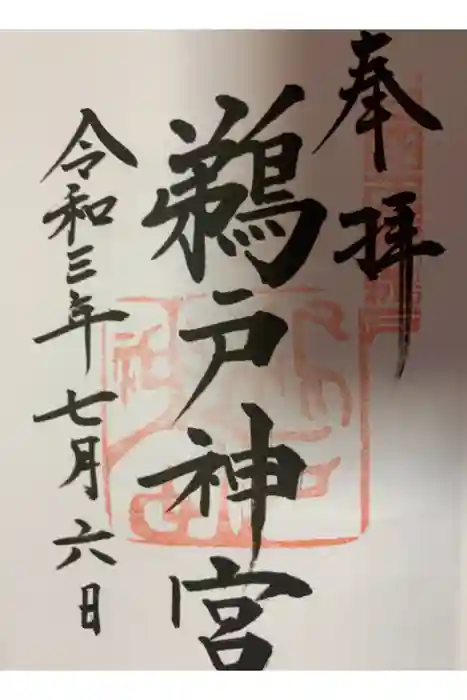 奉拝
鵜戸神宮
令和三年七月六日